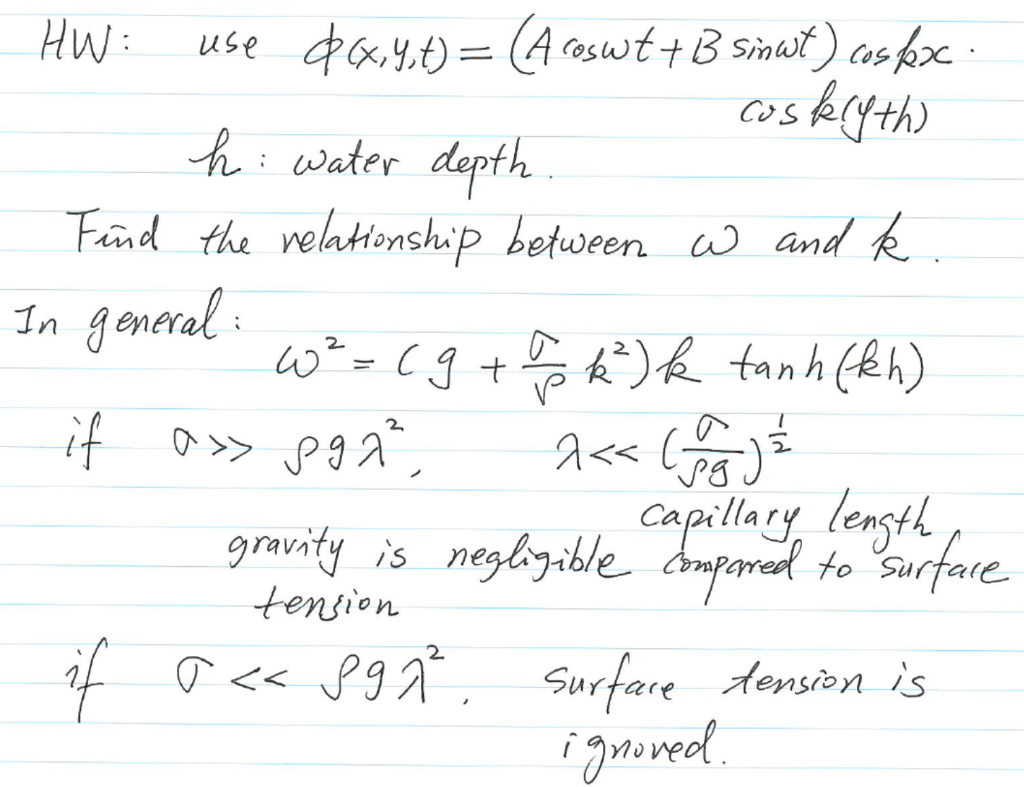 HW: use ϕ(x,y,t) = (A cosωt + B sinωt) cos kx ·
cos k(y+h)
h: water depth.
Find the relationship between ω and k.
In general:
ω² = (g + σ/ρ k²) k tanh(kh)
if σ >> ρgλ², λ << (σ/ρg)^½
capillary length,
gravity is negligible compared to surface
tension
if σ << ρgλ², surface tension is
ignored.